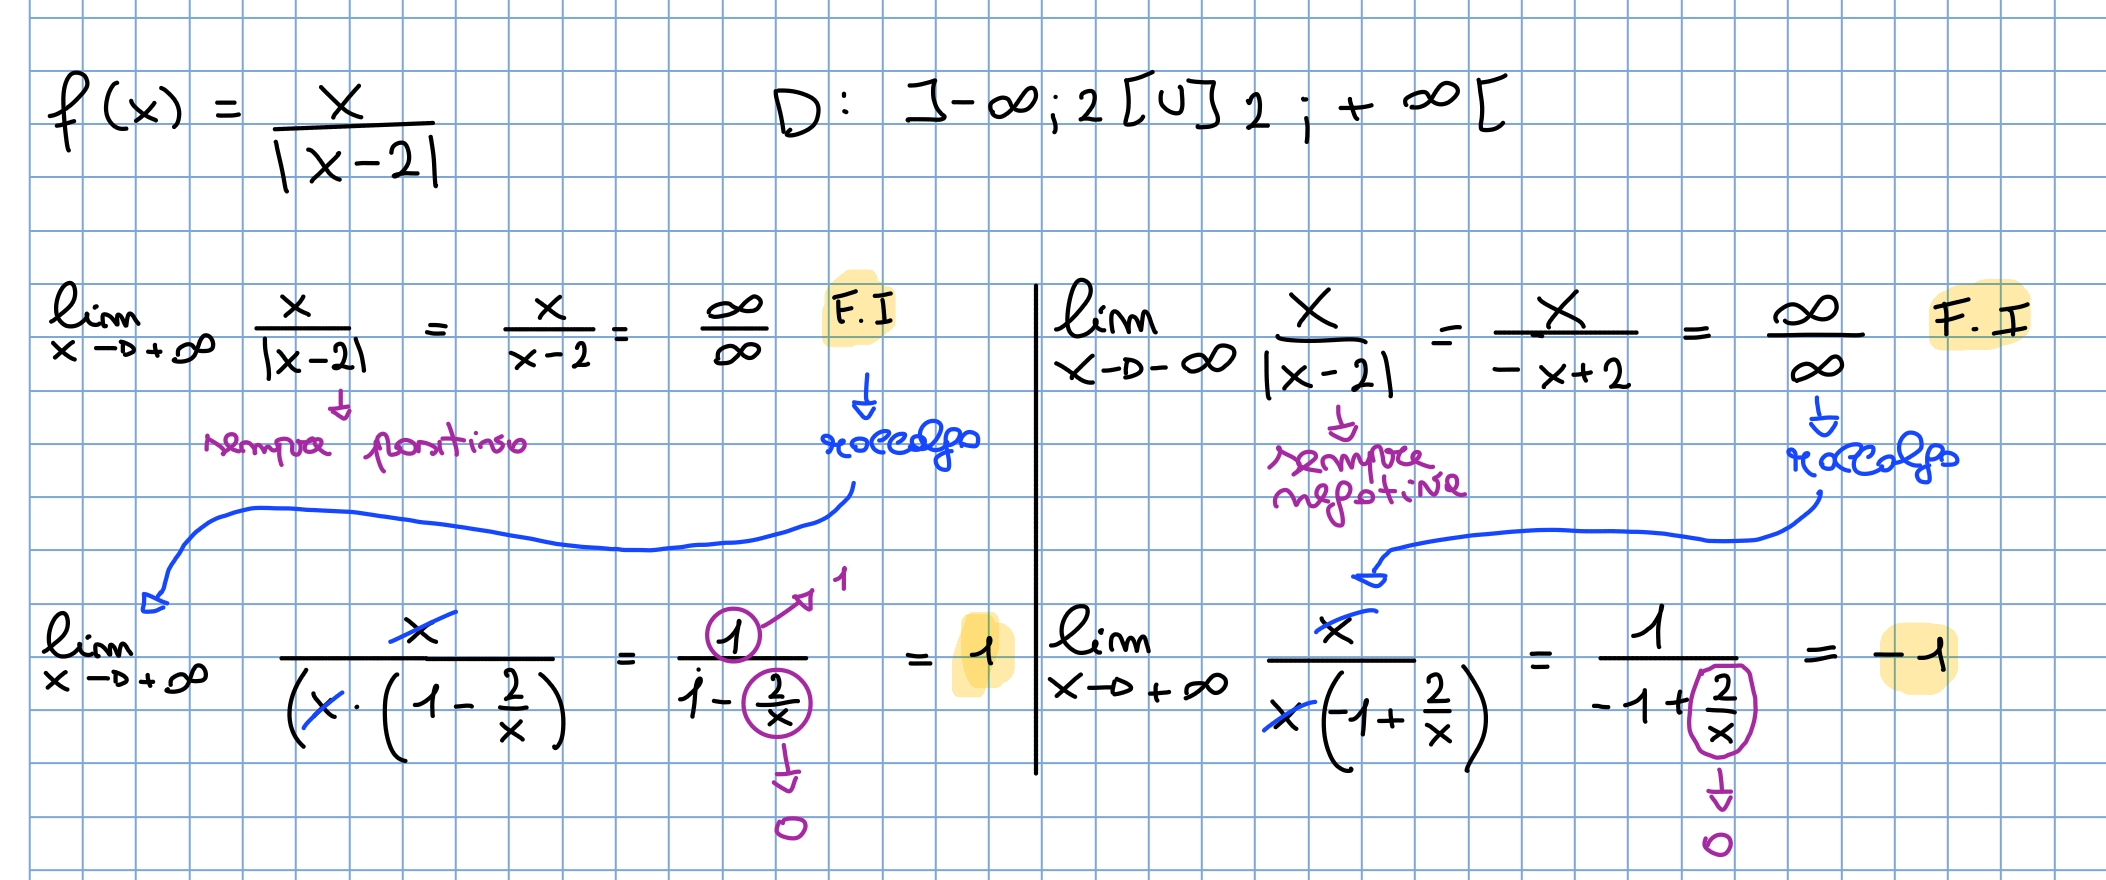 f(x) = x / |x-2|    D: ]-∞; 2[∪]2; +∞[
lim x→+∞ x / |x-2| = x / x-2 = ∞ / ∞ F.I
sempre positivo
raccolgo
lim x→+∞ x / (x · (1 - 2/x) = 1 / 1 - 2/x = 1
1
0
lim x→-∞ x / |x-2| = x / -x+2 = ∞ / ∞ F.I
sempre
negativa
raccolgo
lim x→+∞ x / x(-1 + 2/x) = 1 / -1 + 2/x = -1
0